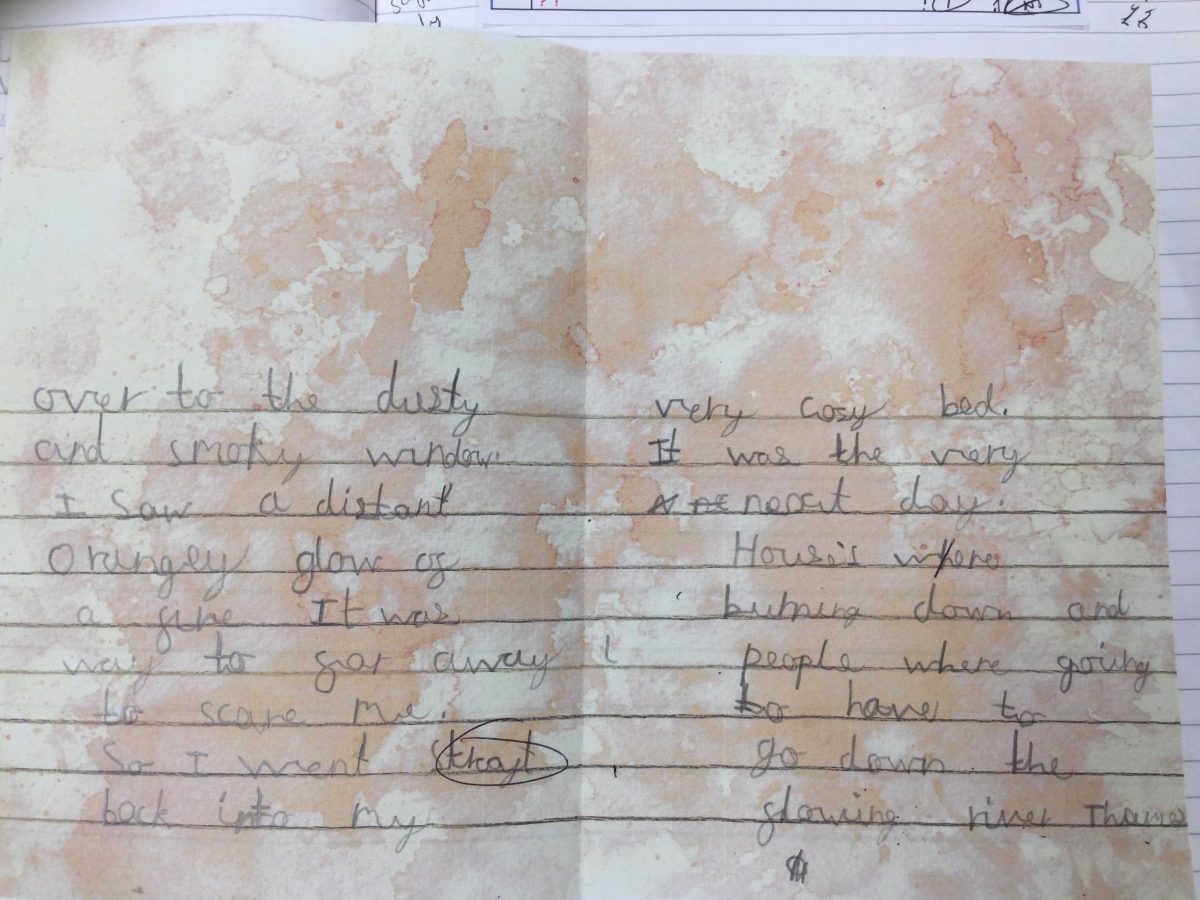 over to the dusty
and smoky window.
I saw a distant
Orangey glow of
a fire It was
way to far away
to scare me.
So I went strayt
back into my
very cosy bed.
It was the very
next day.
House's where
burning down and
people where going
to have to
go down the
glowing river Thames